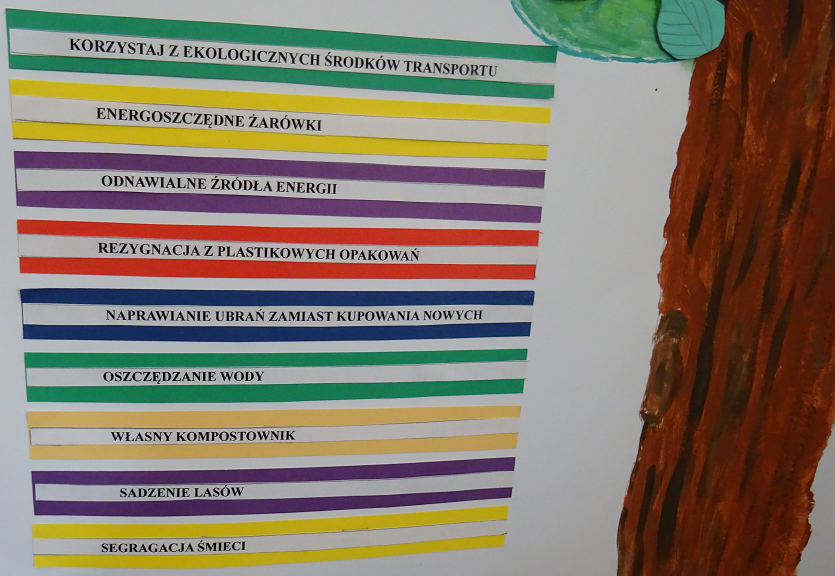 KORZYSTAJ Z EKOLOGICZNYCH ŚRODKÓW TRANSPORTU
ENERGOSZCZĘDNE ŻARÓWKI
ODNAWIALNE ŹRÓDŁA ENERGII
REZYGNACJA Z PLASTIKOWYCH OPAKOWAŃ
NAPRAWIANIE UBRAŃ ZAMIAST KUPOWANIA NOWYCH
OSZCZĘDZANIE WODY
WŁASNY KOMPOSTOWNIK
SADZENIE LASÓW
SEGRAGACJA ŚMIECI